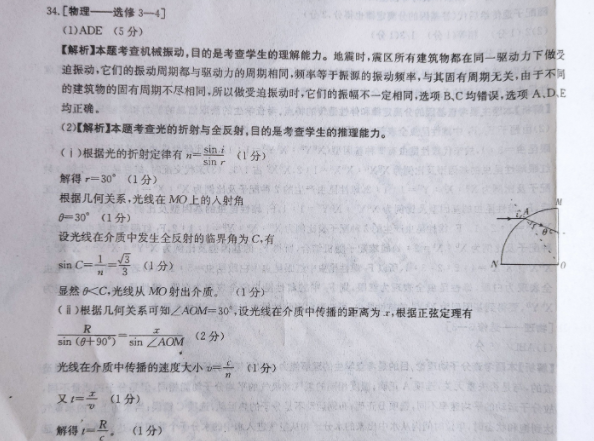 34.[物理——选修 3—4]
(1)ADE (5 分)
【解析】本题考查机械振动,目的是考查学生的理解能力。地震时,震区所有建筑物都在同一驱动力下做受
迫振动,它们的振动周期都与驱动力的周期相同,频率等于振源的振动频率,与其固有周期无关,由于不同
的建筑物的固有周期不尽相同,所以做受迫振动时,它们的振幅不一定相同,选项 B、C 均错误,选项 A、D、E
均正确。
(2)【解析】本题考查光的折射与全反射,目的是考查学生的推理能力。
(ⅰ)根据光的折射定律有 n=sin i/sin r (1 分)
解得 r=30° (1 分)
根据几何关系,光线在 MO 上的入射角
θ=30° (1 分)
设光线在介质中发生全反射的临界角为 C,有
sin C=1/n=√3/3 (1 分)
显然 θ<C,光线从 MO 射出介质。 (1 分)
(ⅱ)根据几何关系可知∠AOM=30°,设光线在介质中传播的距离为 x,根据正弦定理有
R/sin (θ+90°)=x/sin ∠AOM (2 分)
光线在介质中传播的速度大小 v=c/n (1 分)
又 t=x/v (1 分)
解得 t=R/c。 (1 分)
M
i
A
r
θ
N
O